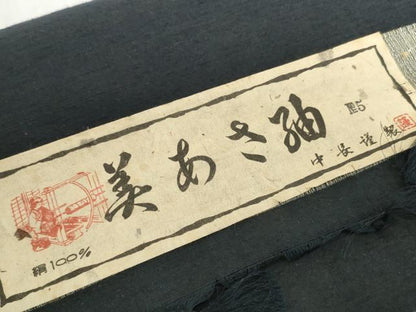 美あさ紬
中長謹製
絹100%